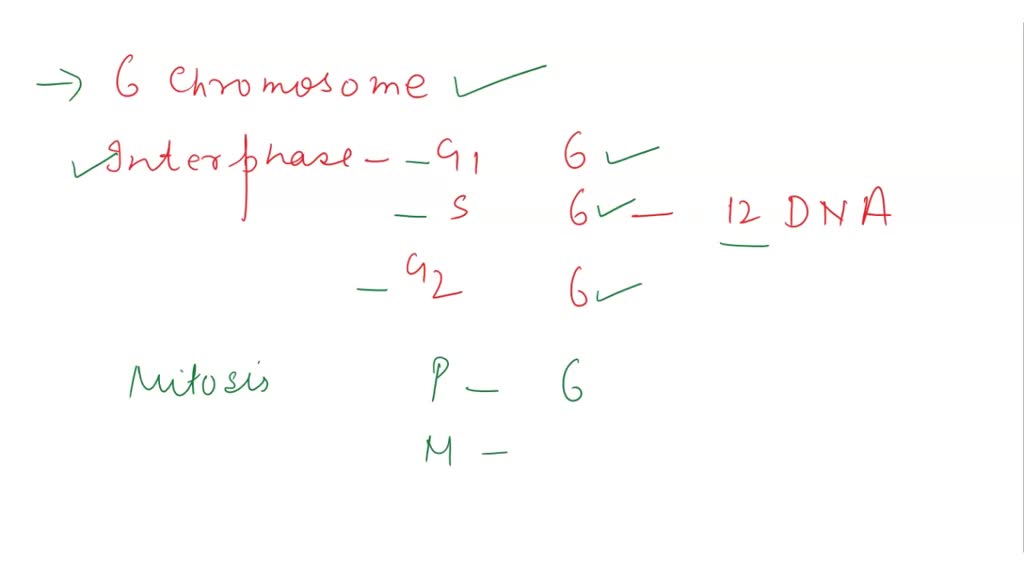 → 6 Chromosome ✓
✓ Interphase - - G1 6 ✓
- S 6 ✓ - 12 DNA
- G2 6 ✓
Mitosis P - 6
M -